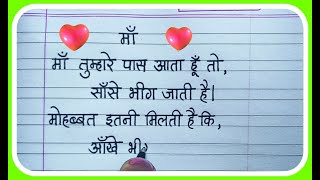 माँ
माँ तुम्हारे पास आता हूँ तो,
साँसे भीग जाती है।
मोहब्बत इतनी मिलती है कि,
आँखे भी